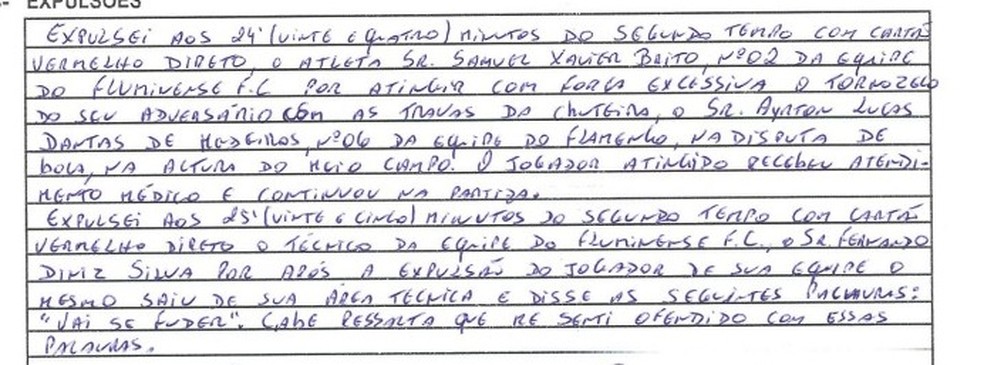 EXPULSÕES
EXPULSEI AOS 24' (VINTE E QUATRO) MINUTOS DO SEGUNDO TEMPO COM CARTÃ
VERMELHO DIRETO, O ATLETA SR. SAMUEL XAVIER BRITO, Nº02 DA EQUIPE
DO FLUMINENSE F.C POR ATINGIR COM FORÇA EXCESSIVA O TORNOZELO
DO SEU ADVERSÁRIO COM AS TRAVAS DA CHUTEIRA, O SR. AYRTON LUCAS
DANTAS DE MEDEIROS, Nº06 DA EQUIPE DO FLAMENGO, NA DISPUTA DE
BOLA, NA ALTURA DO MEIO CAMPO. O JOGADOR ATINGIDO RECEBEU ATENDI-
MENTO MÉDICO E CONTINUOU NA PARTIDA.
EXPULSEI AOS 25' (VINTE E CINCO) MINUTOS DO SEGUNDO TEMPO COM CARTÃ
VERMELHO DIRETO O TÉCNICO DA EQUIPE DO FLUMINENSE F.C., O SR. FERNANDO
DINIZ SILVA POR APÓS A EXPULSÃO DO JOGADOR DE SUA EQUIPE O
MESMO SAIU DE SUA ÁREA TÉCNICA E DISSE AS SEGUINTES PALAVRAS:
"VAI SE FUDER". CABE RESSALTA QUE ME SENTI OFENDIDO COM ESSAS
PALAVRAS.